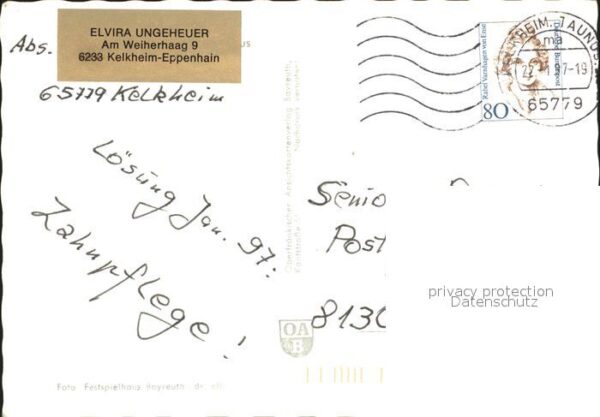 Abs.
ELVIRA UNGEHEUER
Am Weiherhaag 9
6233 Kelkheim-Eppenhain
65779 Kelkheim
Lösung Jan. 97:
Zahnpflege!
Oberfränkischer Ansichtskartenverlag Bayreuth,
OA
B
Foto Festspielhaus Bayreuth
80
Rahel Varnhagen von Ense
Deutsche Bundespost
TAUNUS
ma
-19
65779
Senio
Post
8130
privacy protection
Datenschutz